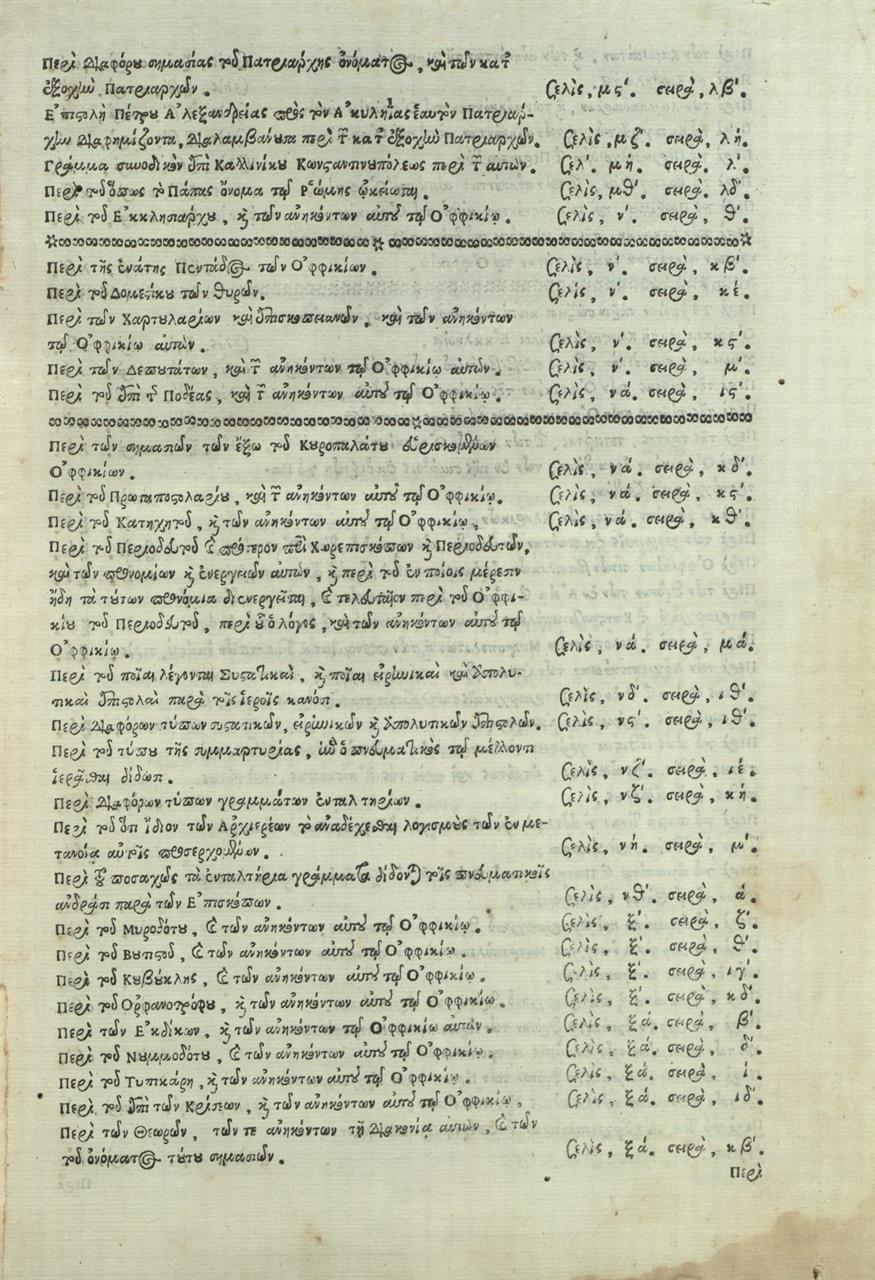 Περὶ Διαφόρου σημασίας τοῦ Πατριάρχης ὀνόματος, καὶ τῶν κατ'
ἐξοχὴν Πατριαρχῶν. Σελὶς, μς΄. σειρὰ, λβ΄.
Ε᾿πιστολὴ Πέτρου Α᾿λεξανδρείας πρὸς τὸν Α᾿κυληΐας ἑαυτὸν Πατριάρ-
χην Διαφημίζοντα, Διαλαμβάνουσα περὶ τῶν κατ' ἐξοχὴν Πατριαρχῶν. Σελὶς, μζ΄. σειρὰ, λή.
Γράμμα συνοδικὸν ἐπὶ Καλλινίκου Κωνσταντινουπόλεως περὶ τῶν αὐτῶν. Σελ΄. μή. σειρὰ. λ΄.
Περὶ τοῦ ὅπως τὸ Πάπας ὄνομα τῷ Ῥώμης ᾠκείωται. Σελὶς, μθ΄. σειρὰ. λδ΄.
Περὶ τοῦ Ε᾿κκλησιάρχου, καὶ τῶν ἀνηκόντων αὐτοῦ τῷ Ο᾿φφικίῳ. Σελὶς, ν΄. σειρὰ, θ΄.
Περὶ τῆς ἐνάτης Πεντάδος τῶν Ο᾿φφικίων. Σελὶς, ν΄. σειρὰ, κβ΄.
Περὶ τοῦ Δομεστίκου τῶν θυρῶν. Σελὶς, ν΄. σειρὰ, κέ.
Περὶ τῶν Χαρτουλαρίων καὶ ἐπισκοπειανῶν, καὶ τῶν ἀνηκόντων
τῷ Ο᾿φφικίῳ αὐτῶν. Σελὶς, ν΄. σειρὰ, κς΄.
Περὶ τῶν Δεπουτάτων, καὶ τῶν ἀνηκόντων τῷ Ο᾿φφικίῳ αὐτῶν. Σελὶς, ν΄. σειρὰ, μ΄.
Περὶ τοῦ ἐπὶ τῆς Ποδέας, καὶ τῶν ἀνηκόντων αὐτοῦ τῷ Ο᾿φφικίῳ. Σελὶς, νά. σειρὰ, ις΄.
Περὶ τῶν σημασιῶν τῶν ἔξω τοῦ Κυροπαλάτου εὑρισκομένων
Ο᾿φφικίων. Σελὶς, νά. σειρὰ, κδ΄.
Περὶ τοῦ Πρωταποστολαρίου, καὶ τῶν ἀνηκόντων αὐτοῦ τῷ Ο᾿φφικίῳ. Σελὶς, νά. σειρὰ, κς΄.
Περὶ τοῦ Κατηχητοῦ, καὶ τῶν ἀνηκόντων αὐτοῦ τῷ Ο᾿φφικίῳ, Σελὶς, νά. σειρὰ, κθ΄.
Περὶ τοῦ Περιοδευτοῦ καὶ πρότερον περὶ Χωρεπισκόπων καὶ Περιοδευτῶν,
καὶ τῶν προνομίων καὶ ἐνεργειῶν αὐτῶν, καὶ περὶ τοῦ ἐν ποίοις μέρεσιν
ἤδη τὰ τούτων προνόμια διενεργεῖται, καὶ τελευταῖον περὶ τοῦ Ο᾿φφι-
κίου τοῦ Περιοδευτοῦ, περὶ οὗ ὁ λόγος, καὶ τῶν ἀνηκόντων αὐτοῦ τῷ
Ο᾿φφικίῳ. Σελὶς, νά. σειρὰ, μά.
Περὶ τοῦ ποῖαι λέγονται Συστατικαὶ, καὶ ποῖαι εἰρηνικαὶ καὶ ἀπολυ-
τικαὶ ἐπιστολαὶ παρὰ τοῖς ἱεροῖς κανόσι. Σελὶς, νδ΄. σειρὰ, ιθ΄.
Περὶ Διαφόρων τύπων συστατικῶν, εἰρηνικῶν καὶ ἀπολυτικῶν ἐπιστολῶν. Σελὶς, νς΄. σειρὰ, ιθ΄.
Περὶ τοῦ τύπου τῆς συμμαρτυρίας, ἣν ὁ πνευματικὸς τῷ μέλλοντι
ἱερᾶσθαι δίδωσι. Σελὶς, νζ΄. σειρὰ, ιέ.
Περὶ Διαφόρων τύπων γραμμάτων ἐνταλτηρίων. Σελὶς, νζ΄. σειρὰ, κή.
Περὶ τοῦ ὅτι ἴδιον τῶν Ἀρχιερέων τὸ ἀναδέχεσθαι λογισμοὺς τῶν ἐν με-
τανοίᾳ αὐτοῖς προσερχομένων. Σελὶς, νή. σειρὰ, μ΄.
Περὶ τοῦ ποσαχῶς τὰ ἐνταλτήρια γράμματα δίδονται τοῖς πνευματικοῖς
ἀνδράσι παρὰ τῶν Ε᾿πισκόπων. Σελὶς, νθ΄. σειρὰ, ά.
Περὶ τοῦ Μυροδότου, καὶ τῶν ἀνηκόντων αὐτοῦ τῷ Ο᾿φφικίῳ. Σελὶς, ξ΄. σειρὰ, ζ΄.
Περὶ τοῦ Βουτιστοῦ, καὶ τῶν ἀνηκόντων αὐτοῦ τῷ Ο᾿φφικίῳ. Σελὶς, ξ΄. σειρὰ, θ΄.
Περὶ τοῦ Κυβούκλης, καὶ τῶν ἀνηκόντων αὐτοῦ τῷ Ο᾿φφικίῳ. Σελὶς, ξ΄. σειρὰ, ιγ΄.
Περὶ τοῦ Ὀρφανοτρόφου, καὶ τῶν ἀνηκόντων αὐτοῦ τῷ Ο᾿φφικίῳ. Σελὶς, ξ΄. σειρὰ, κδ΄.
Περὶ τῶν Ε᾿κδίκων, καὶ τῶν ἀνηκόντων τῷ Ο᾿φφικίῳ αὐτῶν. Σελὶς, ξά. σειρὰ, β΄.
Περὶ τοῦ Νουμμοδότου, καὶ τῶν ἀνηκόντων αὐτοῦ τῷ Ο᾿φφικίῳ. Σελὶς, ξά. σειρὰ, δ΄.
Περὶ τοῦ Τυπικάρη, καὶ τῶν ἀνηκόντων αὐτοῦ τῷ Ο᾿φφικίῳ. Σελὶς, ξά. σειρὰ, ί.
Περὶ τοῦ ἐπὶ τῶν Κρίσεων, καὶ τῶν ἀνηκόντων αὐτοῦ τῷ Ο᾿φφικίῳ, Σελὶς, ξά. σειρὰ, ιδ΄.
Περὶ τῶν Θεωρῶν, τῶν τε ἀνηκόντων τῇ Διακονίᾳ αὐτῶν, καὶ τῶν
τοῦ ὀνόματος τούτου σημασιῶν. Σελὶς, ξά. σειρὰ, κβ΄.
Περὶ